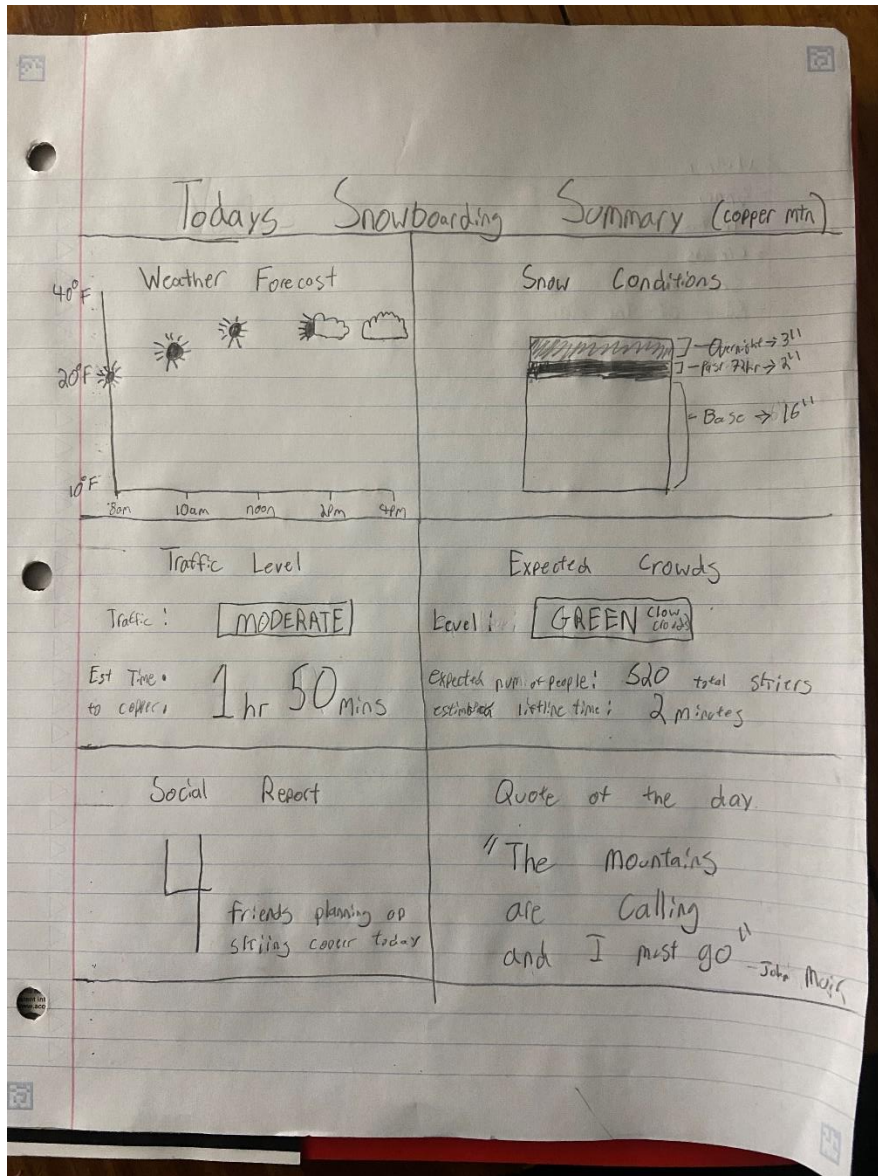 Todays Snowboarding Summary (copper mtn)
Weather Forecost
40°F
20°F
10°F
8am 10am noon 2pm 4pm
Snow Conditions
Overnight → 3"
Past 72hr → 2"
Base → 16"
Traffic Level
Traffic: MODERATE
Est Time
to copper:
1hr 50mins
Expected Crowds
Level: GREEN (low
crowds)
expected num of people: 520 total skiers
estimated liftline time: 2 minutes
Social Report
4
friends planning on
skiing copper today
Quote of the day
"The mountains
are Calling
and I must go"
-John Muir